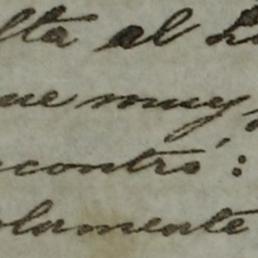 lta al
ue muy
contró:
olamente